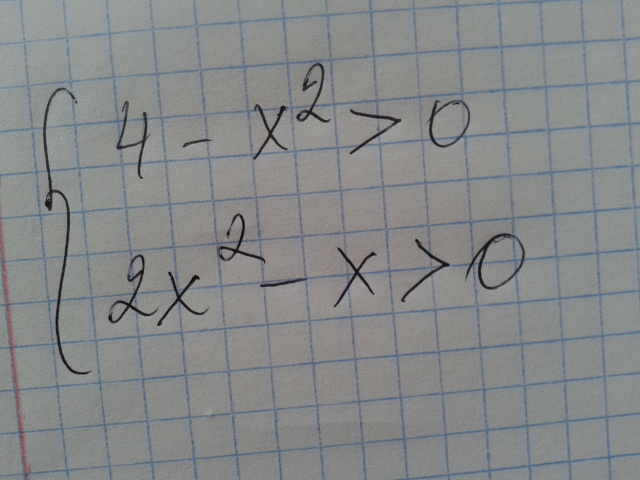 4 - x² > 0
2x² - x > 0